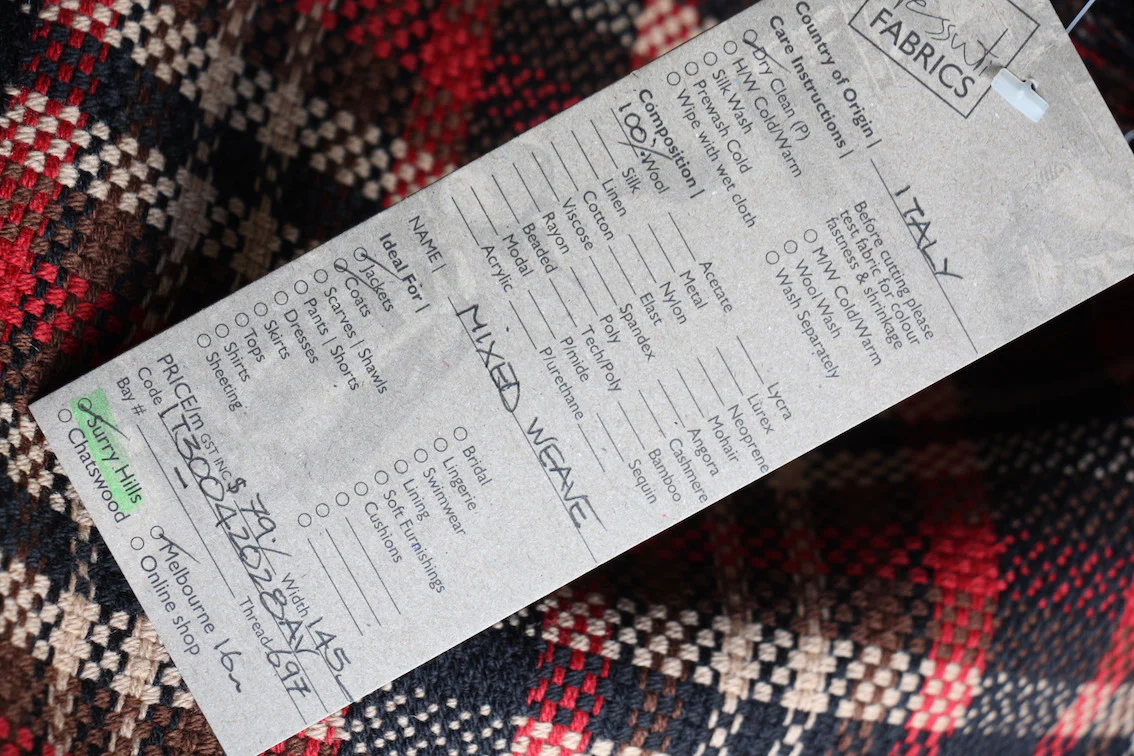 FABRICS
Country of Origin | ITALY
Care Instructions |
Dry Clean (P)
H/W Cold/Warm
Silk Wash
Prewash Cold
Wipe with wet cloth
Before cutting please
test fabric for colour
fastness & shrinkage
M/W Cold/Warm
Wool Wash
Wash Separately
Composition |
100% Wool
Silk
Linen
Cotton
Viscose
Rayon
Beaded
Modal
Acrylic
Acetate
Metal
Nylon
Elast
Spandex
Poly
Tech/Poly
P/mide
P/urethane
Lycra
Lurex
Neoprene
Mohair
Angora
Cashmere
Bamboo
Sequin
NAME | MIXED WEAVE
Ideal For |
Jackets
Coats
Scarves | Shawls
Pants | Shorts
Dresses
Skirts
Tops
Shirts
Sheeting
Bridal
Lingerie
Swimwear
Lining
Soft Furnishings
Cushions
PRICE/m GST INC $ 79 Width 145
Code | T30042028AV Thread 697
Bay #
Surry Hills
Chatswood
Melbourne 16m
Online shop